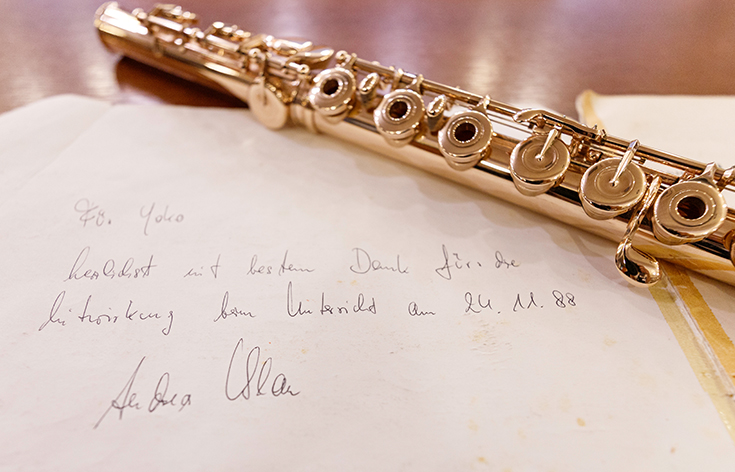 Fr. Yoko
herzlichst mit bestem Dank für die
Mitwirkung beim Unterricht am 24. 11. 88
Andrea